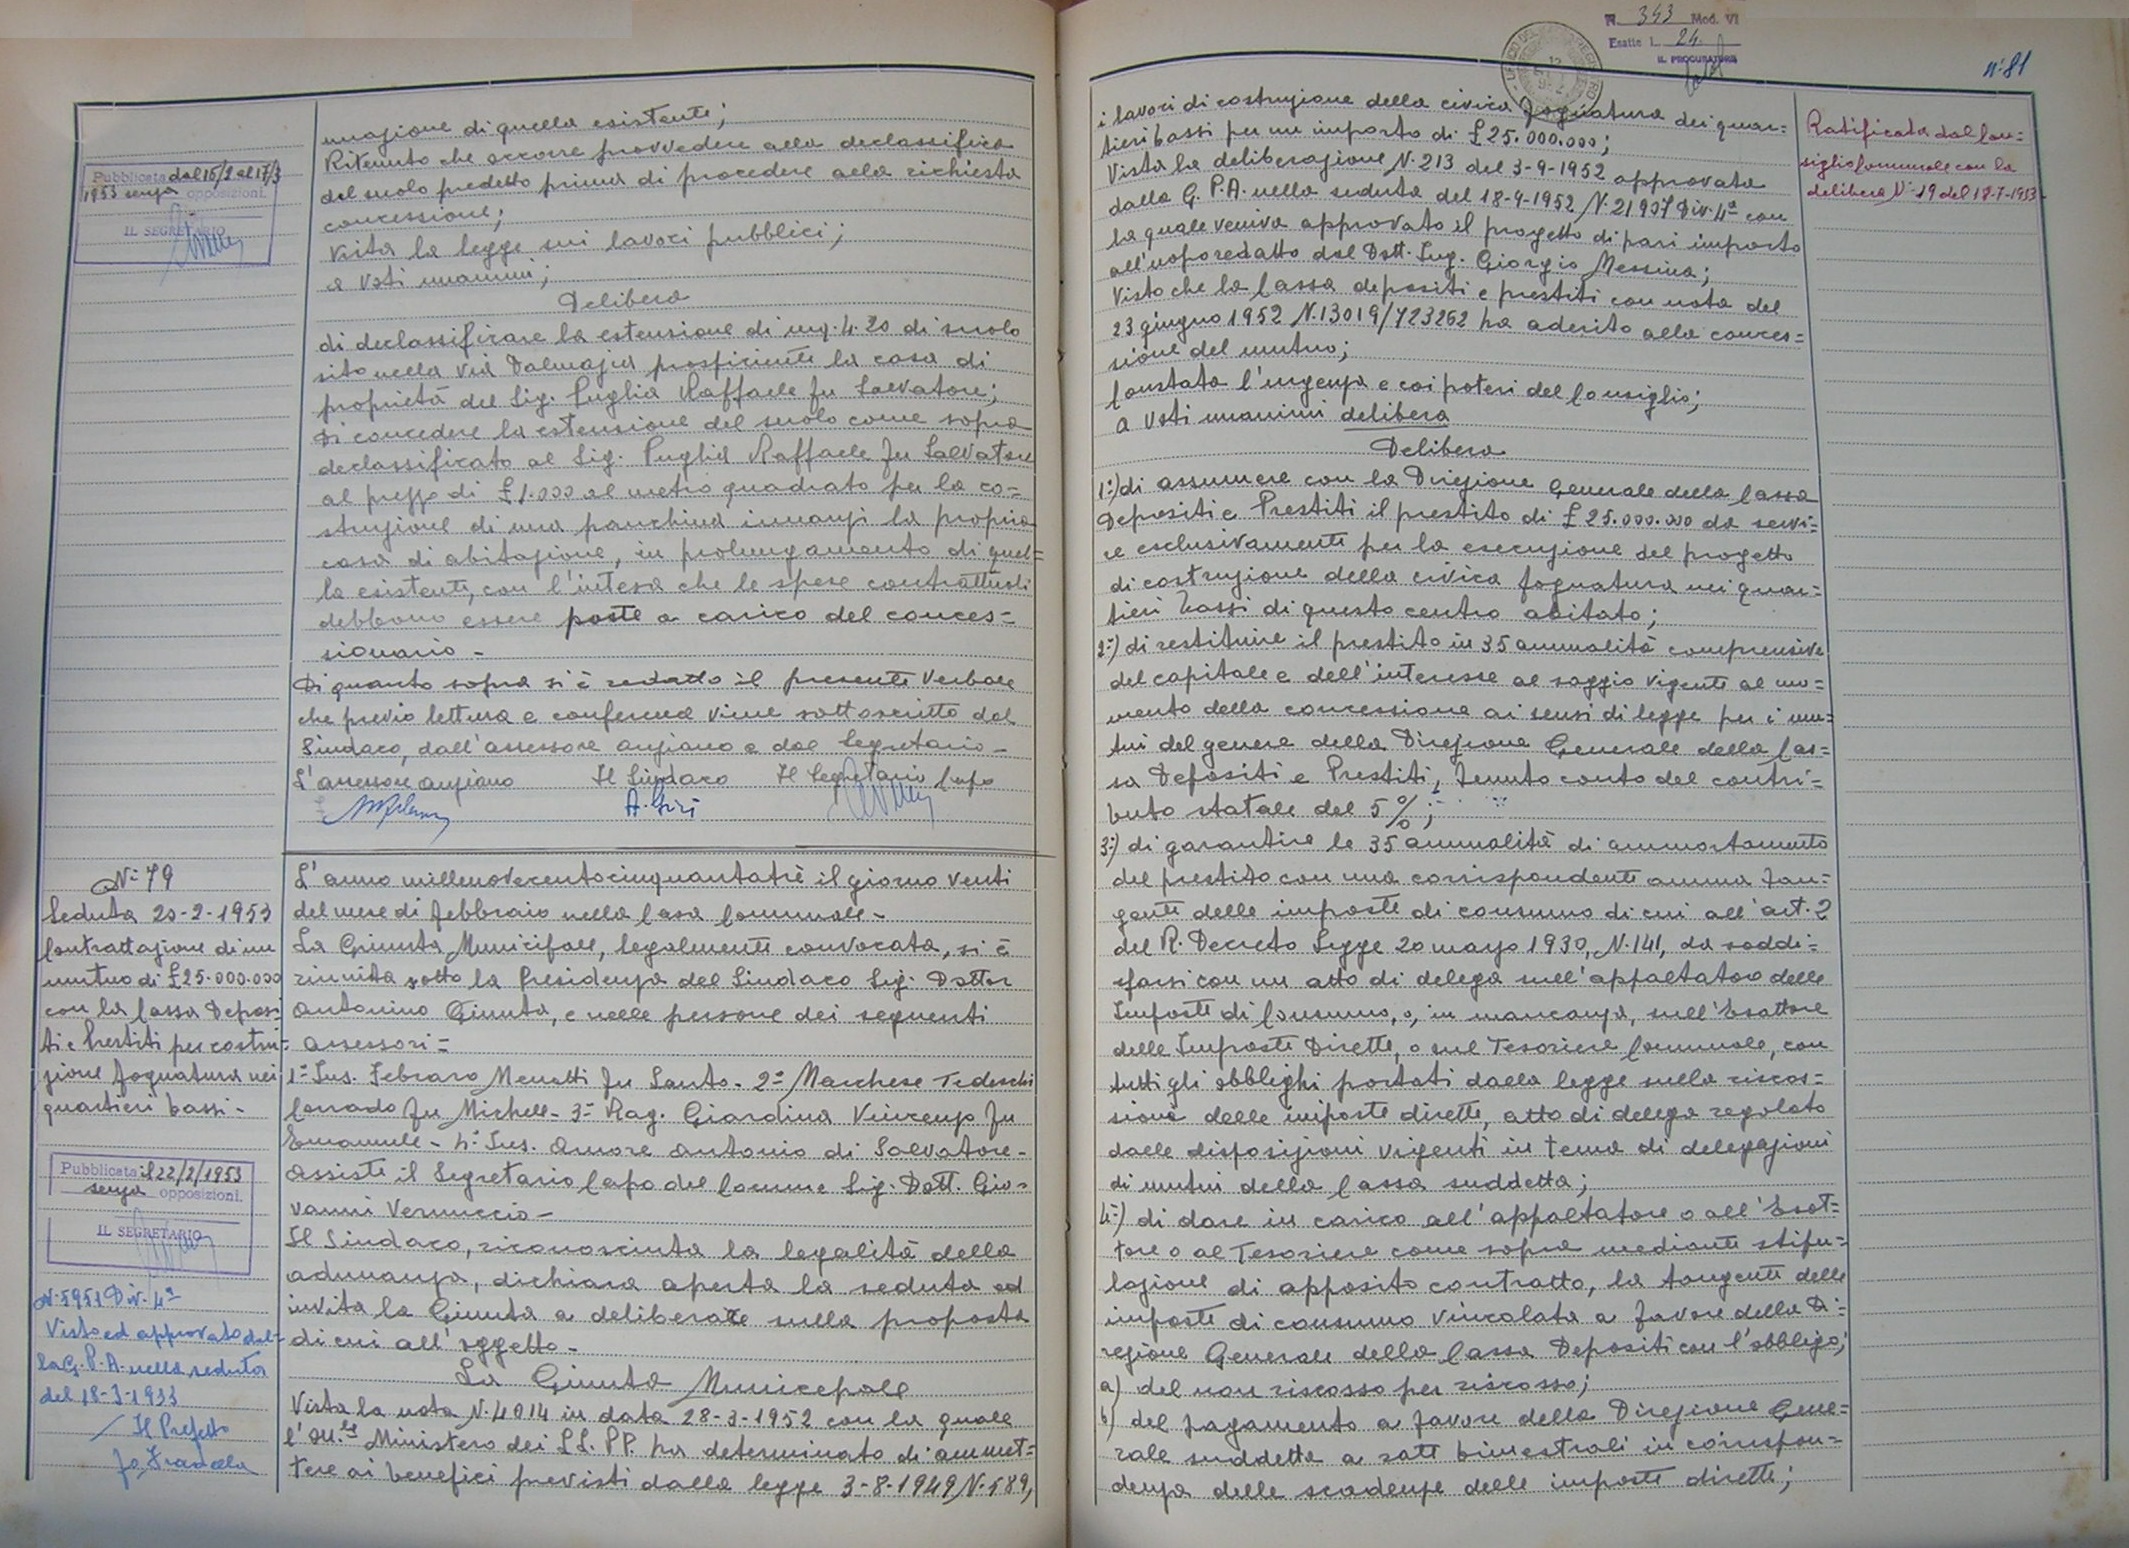 Pubblicata dal 15/2 al 17/3
1953 senza opposizioni.
IL SEGRETARIO
nuazione di quella esistente;
Ritenuto che occorre provvedere alla declassifica
del suolo predetto prima di procedere alla richiesta
concessione;
Vista la legge sui lavori pubblici;
a voti unanimi;
Delibera
di declassificare la estensione di mq. 4.20 di suolo
sito nella via Dalmazia prospiciente la casa di
proprietà del Sig. Puglia Raffaele fu Salvatore;
Di concedere la estensione del suolo come sopra
declassificato al Sig. Puglia Raffaele fu Salvatore
al prezzo di £ 1.000 al metro quadrato per la co=
struzione di una panchina innanzi la propria
casa di abitazione, in prolungamento di quel=
la esistente, con l'intesa che le spese contrattuali
debbono essere poste a carico del conces=
sionario -
Di quanto sopra si è redatto il presente verbale
che previo lettura e conferma viene sottoscritto dal
Sindaco, dall'assessore anziano e dal Segretario -
L'assessore anziano Il Sindaco Il Segretario Capo
A. Giunta
N: 79
Seduta 20-2-1953
Contrattazione di un
mutuo di £ 25.000.000
con la Cassa Deposi-
ti e Prestiti per costru-
zione fognatura nei
quartieri bassi -
Pubblicata il 22/2/1953
senza opposizioni.
IL SEGRETARIO
N. 5951 Div. 4ª
Visto ed approvato dal-
la G.P.A. nella seduta
del 18-3-1953
Il Prefetto
L'anno millenovecentocinquantatrè il giorno venti
del mese di febbraio nella Casa Comunale -
La Giunta Municipale, legalmente convocata, si è
riunita sotto la Presidenza del Sindaco Sig. Dottor
Antonino Giunta, e nelle persone dei seguenti
assessori =
1= Ins. Febraro Menotti fu Santo - 2= Marchese Tedeschi
Corrado fu Michele - 3= Rag. Giardina Vincenzo fu
Emanuele - 4= Ins. Amore Antonio di Salvatore -
Assiste il Segretario Capo del Comune Sig. Dott. Gio-
vanni Vernuccio -
Il Sindaco, riconosciuta la legalità della
adunanza, dichiara aperta la seduta ed
invita la Giunta a deliberare sulla proposta
di cui all'oggetto -
La Giunta Municipale
Vista la nota N. 4014 in data 28-3-1952 con la quale
l'On.le Ministero dei LL. PP. ha determinato di ammet-
tere ai benefici previsti dalla legge 3-8-1949 N. 589,
N. 343 Mod. VI
Esatte L. 24.
IL PROCURATORE
n: 81
i lavori di costruzione della civica fognatura dei quar=
tieri bassi per un importo di £ 25.000.000;
Vista la deliberazione N. 213 del 3-9-1952 approvata
dalla G.P.A. nella seduta del 18-9-1952 N. 21907 Div. 4ª con
la quale veniva approvato il progetto di pari importo
all'uopo redatto dal Dott. Ing. Giorgio Messina;
Visto che la Cassa depositi e prestiti con nota del
23 giugno 1952 N. 13019/723262 ha aderito alla conces=
sione del mutuo;
Constata l'urgenza e coi poteri del Consiglio;
a voti unanimi delibera
Delibera
1=) di assumere con la Direzione Generale della Cassa
Depositi e Prestiti il prestito di £ 25.000.000 da servi=
re esclusivamente per la esecuzione del progetto
di costruzione della civica fognatura nei quar=
tieri bassi di questo centro abitato;
2=) di restituire il prestito in 35 annualità comprensive
del capitale e dell'interesse al saggio vigente al mo=
mento della concessione ai sensi di legge per i mu=
tui del genere della Direzione Generale della Cas=
sa Depositi e Prestiti, tenuto conto del contri=
buto statale del 5%;
3=) di garantire le 35 annualità di ammortamento
del prestito con una corrispondente annua tan=
gente delle imposte di consumo di cui all'art. 2
del R. Decreto Legge 20 marzo 1930, N. 141, da soddi=
sfarsi con un atto di delega sull'appaltatore delle
Imposte di Consumo, o, in mancanza, sull'Esattore
delle Imposte Dirette, o sul Tesoriere Comunale, con
tutti gli obblighi portati dalla legge sulla riscos=
sione delle imposte dirette, atto di delega regolato
dalle disposizioni vigenti in tema di delegazioni
di mutui della Cassa suddetta;
4=) di dare in carico all'appaltatore o all'Esat=
tore o al Tesoriere come sopra mediante stipu=
lazione di apposito contratto, la tangente delle
imposte di consumo vincolata a favore della Di=
rezione Generale della Cassa Depositi con l'obbligo;
a) del non riscosso per riscosso;
b) del pagamento a favore della Direzione Gene=
rale suddetta a rate bimestrali in corrispon=
denza delle scadenze delle imposte dirette;
Ratificata dal Con=
siglio Comunale con la
delibera N. 19 del 18-7-1953